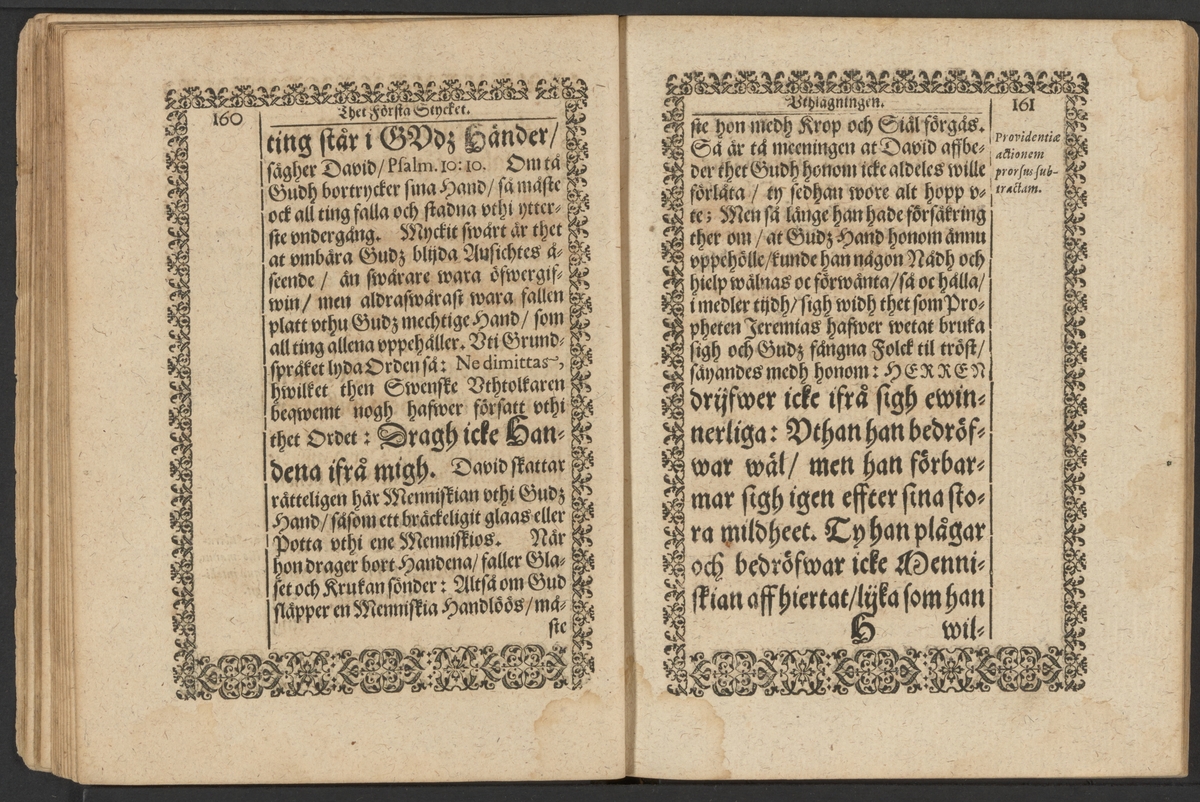 160
Thet Första Stycket.
ting står i GVdz Händer/
sägher David/ Psalm. 10: 10. Om tå
Gudh bortrycker sina Hand/ så måste
ock all ting falla och stadna vthi ytter-
ste vndergång. Myckit swårt är thet
at vmbära Gudz blijda Ansichtes å-
seende / än swårare wara öfwergif-
win/ men aldraswårast wara fallen
platt vthu Gudz mechtige Hand/ som
all ting allena vppehåller. Vti Grund-
språket lyda Orden så: Ne dimittas,
hwilket then Swenske Vthtolkaren
beqwemt nogh hafwer försatt vthi
thet Ordet: Dragh icke Han-
dena ifrå migh. David skattar
rätteligen här Menniskian vthi Gudz
Hand/ såsom ett bräckeligit glaas eller
Potta vthi ene Menniskios. När
hon drager bort Handena/ faller Gla-
set och Krukan sönder: Altså om Gud
släpper en Menniskia Handlöös/ må-
ste
Vthlagningen.
161
ste hon medh Krop och Siäl förgås.
Så är tå meeningen at David affbe-
der thet Gudh honom icke aldeles wille
förlåta / ty sedhan wore alt hopp v-
te; Men så länge han hade försäkring
ther om / at Gudz Hand honom ännu
vppehölle/ kunde han någon Nådh och
hielp wäntas oc förwänta/ så oc hålla/
i medler tijdh/ sigh widh thet som Pro-
pheten Jeremias hafwer wetat bruka
sigh och Gudz fångna Folck til tröst/
säyandes medh honom: HERREN
drijfwer icke ifrå sigh ewin-
nerliga: Vthan han bedröf-
war wäl/ men han förbar-
mar sigh igen effter sina sto-
ra mildheet. Ty han plågar
och bedröfwar icke Menni-
skian aff hiertat/ lijka som han
H wil-
Providentiæ
actionem
prorsus sub-
tractam.